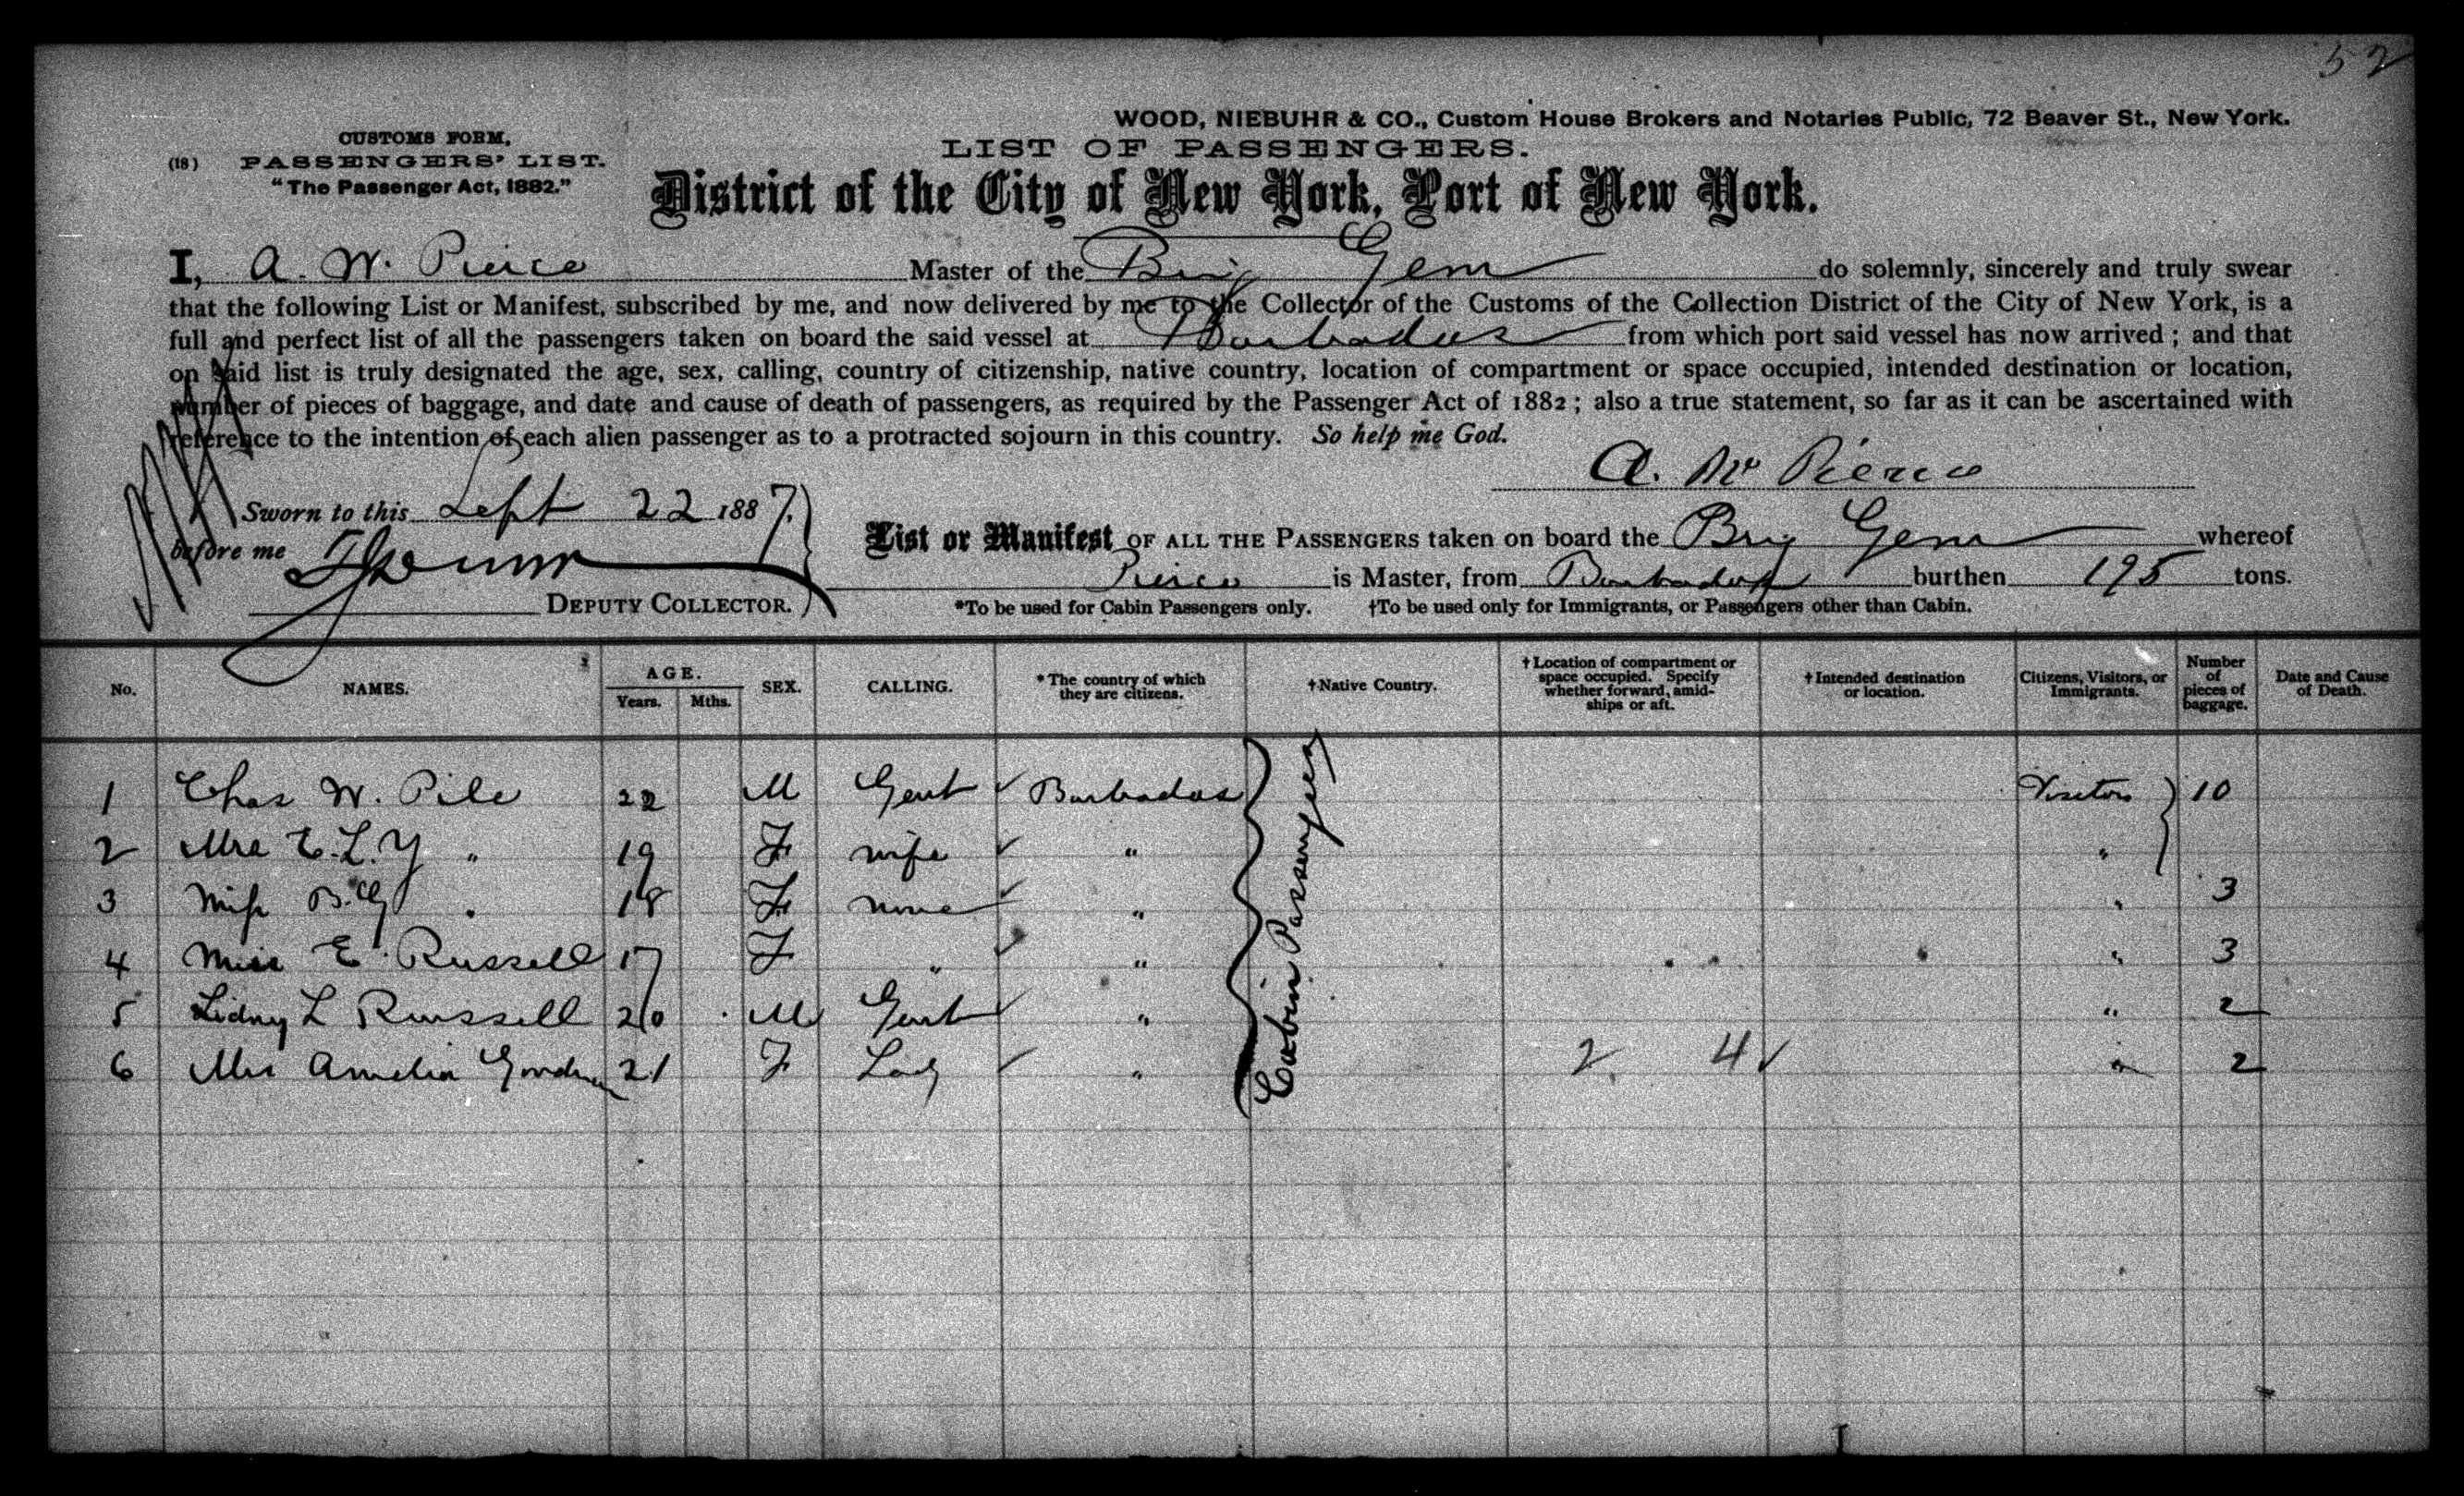 52
WOOD, NIEBUHR & CO., Custom House Brokers and Notaries Public, 72 Beaver St., New York.
CUSTOMS FORM,
(18) PASSENGERS' LIST.
"The Passenger Act, 1882."
LIST OF PASSENGERS.
District of the City of New York, Port of New York.
I, A. W. Pierce Master of the Brig Gem do solemnly, sincerely and truly swear
that the following List or Manifest, subscribed by me, and now delivered by me to the Collector of the Customs of the Collection District of the City of New York, is a
full and perfect list of all the passengers taken on board the said vessel at Barbados from which port said vessel has now arrived; and that
on said list is truly designated the age, sex, calling, country of citizenship, native country, location of compartment or space occupied, intended destination or location,
number of pieces of baggage, and date and cause of death of passengers, as required by the Passenger Act of 1882; also a true statement, so far as it can be ascertained with
reference to the intention of each alien passenger as to a protracted sojourn in this country. So help me God.
A. W Pierce
Sworn to this Sept 22 1887.
before me
DEPUTY COLLECTOR.
List or Manifest OF ALL THE PASSENGERS taken on board the Brig Gem whereof
Pierce is Master, from Barbados burthen 195 tons.
*To be used for Cabin Passengers only. †To be used only for Immigrants, or Passengers other than Cabin.
No. NAMES. AGE. Years. Mths. SEX. CALLING. *The country of which they are citizens. †Native Country. †Location of compartment or space occupied. Specify whether forward, amidships or aft. †Intended destination or location. Citizens, Visitors, or Immigrants. Number of pieces of baggage. Date and Cause of Death.
Cabin Passengers
1 Chas W. Pile 22 M Gent Barbados Visitors 10
2 Mrs E. L. Y " 19 F wife " "
3 Miss B. " 18 F none " " 3
4 Miss E. Russell 17 F " " " 3
5 Sidney L Russell 20 M Gent " " 2
6 Mrs Amelia 21 F Lady " 2 4 " 2